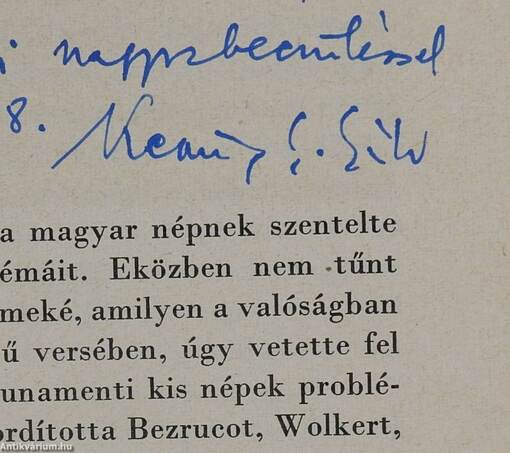 i nagyrabecsüléssel
8.
a magyar népnek szentelte
émáit. Eközben nem tűnt
meké, amilyen a valóságban
ű versében, úgy vetette fel
unamenti kis népek problé-
ordította Bezrucot, Wolkert,
Antikvárium.hu